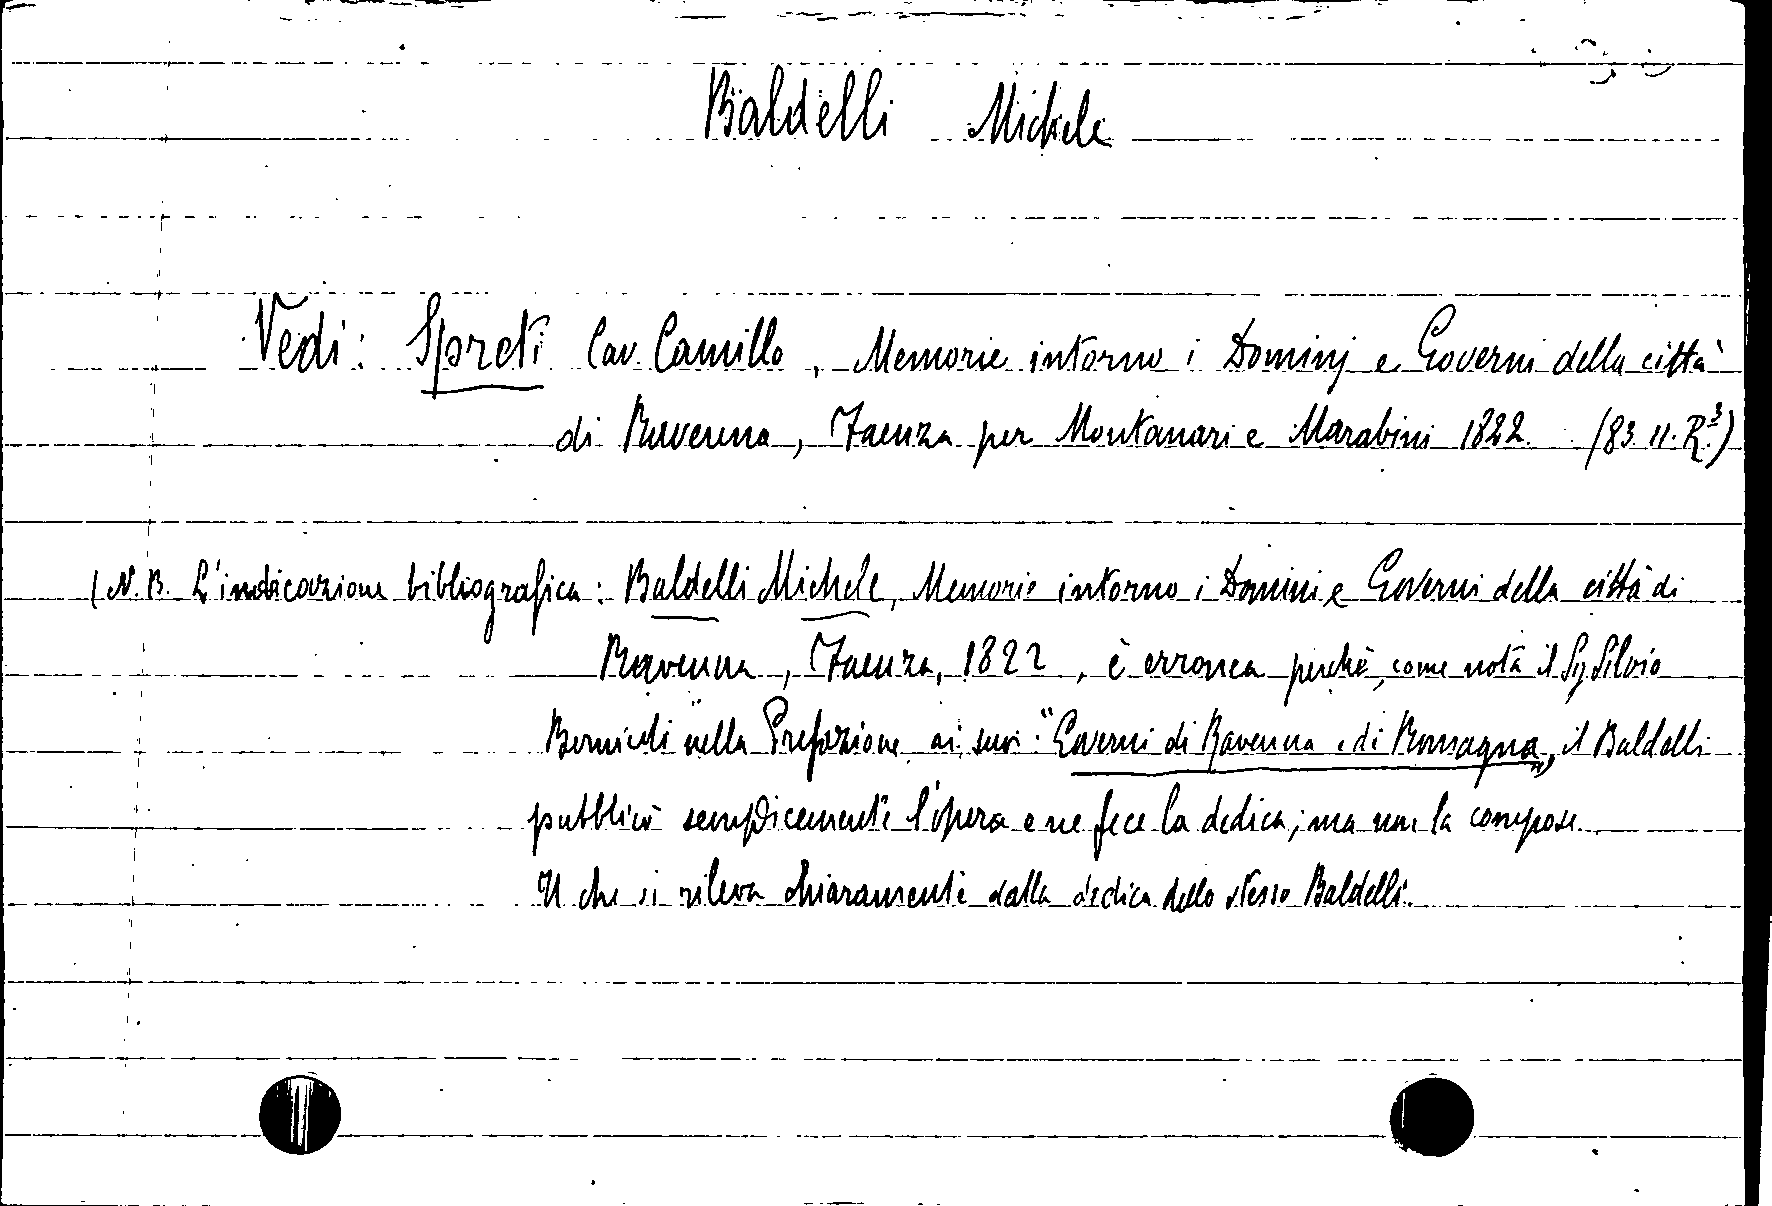 Baldelli Michele
Vedi: Spreti Cav. Camillo, Memorie intorno i Dominj e Governi della città
di Ravenna, Faenza per Montanari e Marabini 1822. (83. 11. R.³)
(N.B. L'indicazione bibliografica: Baldelli Michele, Memorie intorno i Domini e Governi della città di
Ravenna, Faenza, 1822, è erronea perchè, come nota il Sg Silvio
Bernicoli nella Prefazione ai suoi: "Governi di Ravenna e di Romagna", il Baldelli
pubblicò semplicemente l'opera e ne fece la dedica; ma non la compose.
Il che si rileva chiaramente dalla dedica dello stesso Baldelli.